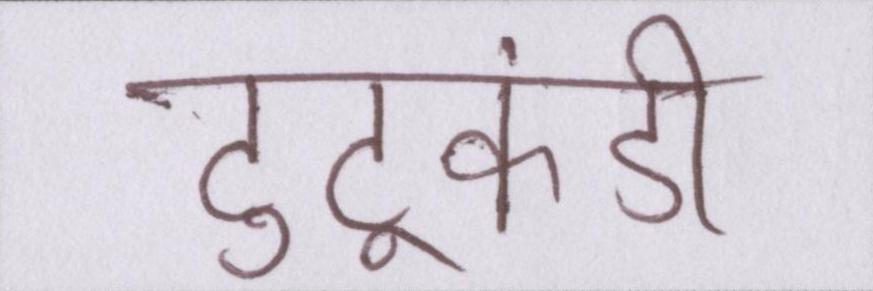 टुटूकंडी